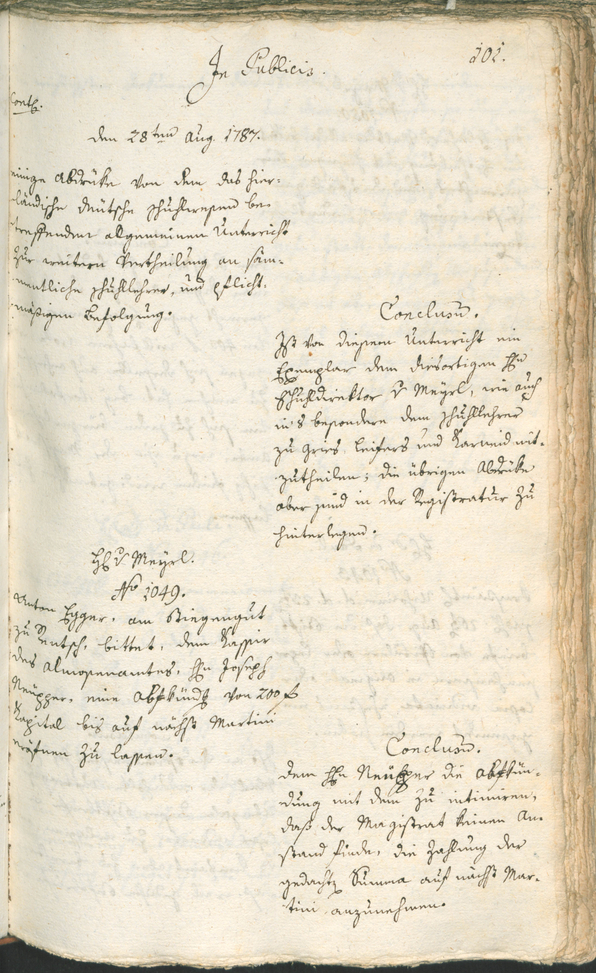 In Publicis.
101.
Cont.
den 28ten Aug. 1787.
einige Abdrüke von dem das hier-
ländische deütsche Schuhlwesen be-
treffenden allgemeinen Unterricht
zur weitern Vertheilung an säm-
mentliche Schuhllehrer, und pflicht-
mäßigen Befolgung.
Conclusum.
Ist von diesem Unterricht ein
Exemplar dem diesortigen Hn
Schuhldirektor v Meyrl, wie auch
ins besondere dem Schuhllehrer
zu Gries, Leifers und Karneid mit-
zutheilen; die übrigen Abdrüke
aber sind in der Registratur zu
hinterlegen.
H v Meyrl.
No 1049.
Anton Egger, am Stiegengut
zu Rentsch, bittet, dem Kassier
des Almosenamtes, Hn Joseph
Neupper, eine Abkündg von 200 f
Kapital bis auf nächst Martini
eröfnen zu lassen.
Conclusum.
dem Hn Neupper die Abkün-
dung mit dem zu intimiren,
daß der Magistrat keinen An-
stand finde, die Zahlung der
gedacht Summa auf nächst Mar-
tini anzunehmen.